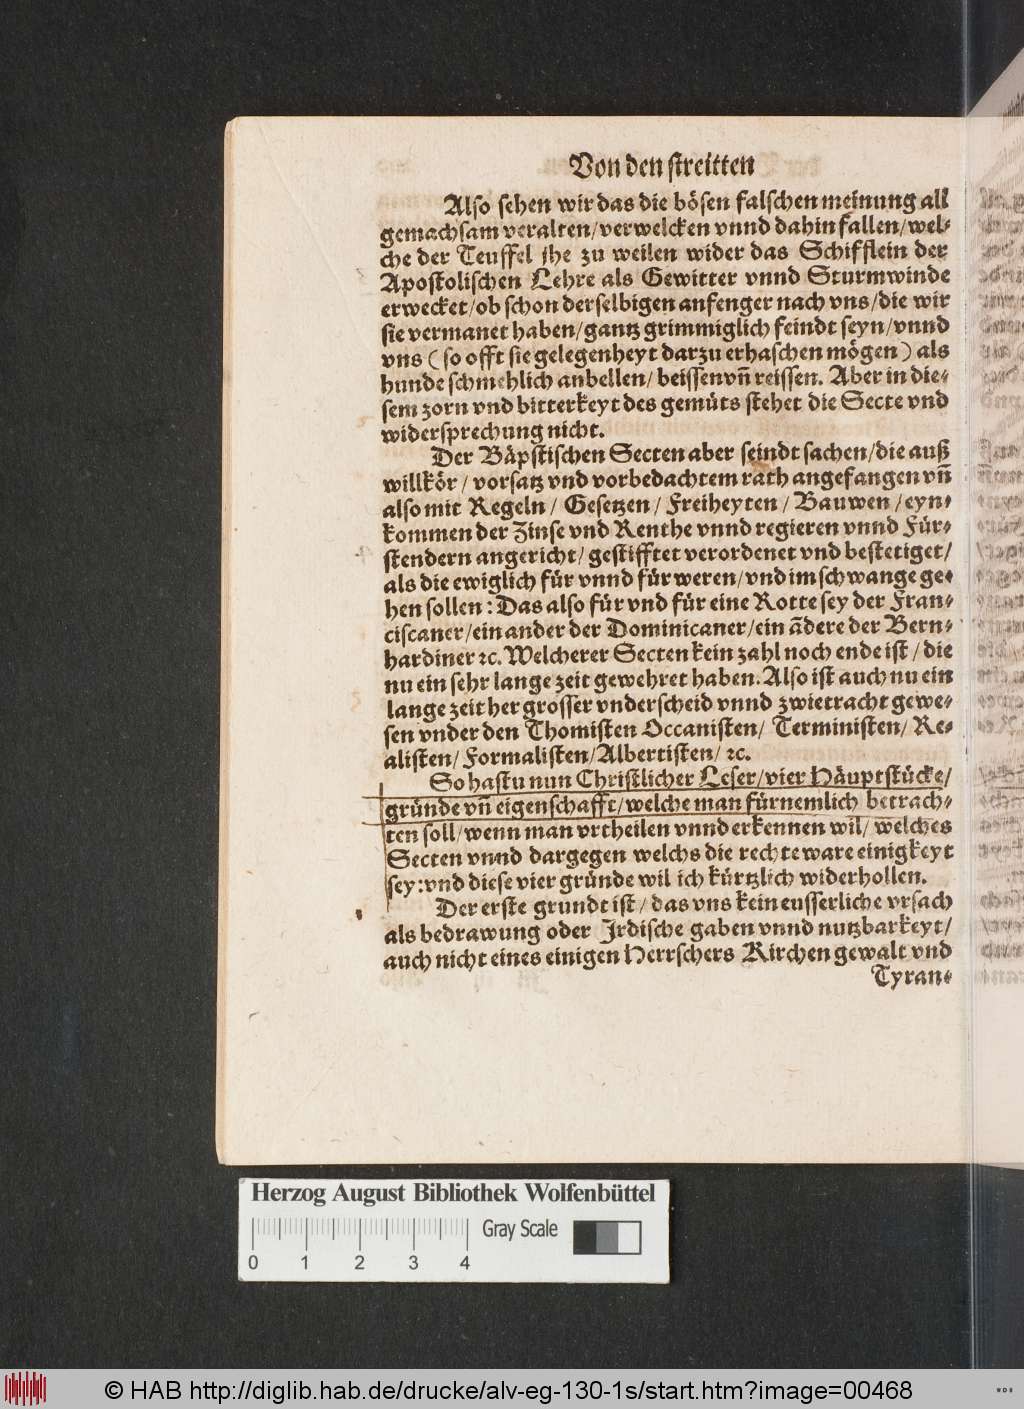 Von den streitten
Also sehen wir das die bösen falschen meinung all
gemachsam veralten/verwelcken vnnd dahin fallen/wel-
che der Teuffel jhe zu weilen wider das Schifflein der
Apostolischen Lehre als Gewitter vnnd Sturmwinde
erwecket/ob schon derselbigen anfenger nach vns/die wir
sie vermanet haben/gantz grimmiglich feindt seyn/vnnd
vns (so offt sie gelegenheyt darzu erhaschen mögen) als
hunde schmehlich anbellen/beissen vñ reissen. Aber in die-
sem zorn vnd bitterkeyt des gemüts stehet die Secte vnd
widersprechung nicht.
Der Bäpstischen Secten aber seindt sachen/die auß
willkör/vorsatz vnd vorbedachtem rath angefangen vñ
also mit Regeln/Gesetzen/Freiheyten/Bauwen/eyn-
kommen der Zinse vnd Renthe vnnd regieren vnnd Für-
stendern angericht/gestifftet verordenet vnd bestetiget/
als die ewiglich für vnnd für weren/vnd im schwange ge-
hen sollen: Das also für vnd für eine Rotte sey der Fran-
ciscaner/ein ander der Dominicaner/ein ãdere der Bern-
hardiner ꝛc. Welcherer Secten kein zahl noch ende ist/die
nu ein sehr lange zeit gewehret haben. Also ist auch nu ein
lange zeit her grosser vnderscheid vnnd zwietracht gewe-
sen vnder den Thomisten Occanisten/Terministen/Re-
alisten/Formalisten/Albertisten/ꝛc.
So hastu nun Christlicher Leser/vier Häuptstücke/
gründe vñ eigenschafft/welche man fürnemlich betrach-
ten soll/wenn man vrtheilen vnnd erkennen wil/welches
Secten vnnd dargegen welchs die rechte ware einigkeyt
sey: vnd diese vier gründe wil ich kürtzlich widerhollen.
Der erste grundt ist/das vns kein eusserliche vrsach
als bedrawung oder Irdische gaben vnnd nutzbarkeyt/
auch nicht eines einigen Herrschers Kirchen gewalt vnd
Tyran-
Herzog August Bibliothek Wolfenbüttel
Gray Scale
0 1 2 3 4
© HAB http://diglib.hab.de/drucke/alv-eg-130-1s/start.htm?image=00468